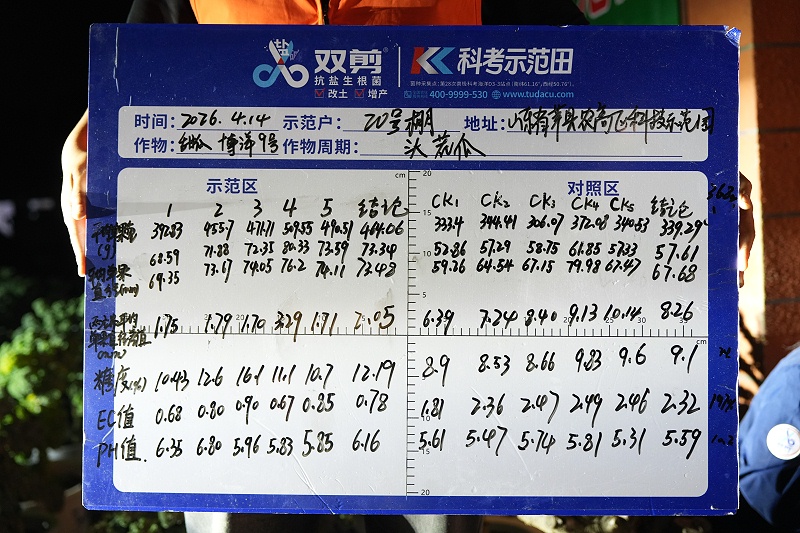 双剪 科考示范田
抗盐生根菌
改土 增产
400-9999-530 www.tudacu.com
时间: 2026.4.14 示范户: 20号棚 地址:
作物: 博洋9号 作物周期: 头茬瓜
示范区 对照区
1 2 3 4 5 结论 CK1 CK2 CK3 CK4 CK5 结论
392.83 455.7 471.71 509.55 490.51 464.06 333.4 344.41 306.07 372.08 340.53 339.29
(g) 68.59 71.88 72.35 80.33 73.59 73.34 52.86 57.29 58.75 61.85 57.33 57.61
平均单果直径(mm) 69.35 73.67 74.05 76.2 74.11 73.48 59.26 64.54 67.15 79.98 67.47 67.68
1.75 1.79 1.70 3.29 1.71 2.05 6.39 7.24 8.40 9.13 10.14 8.26
(mm)
糖度(%) 10.43 12.6 16.1 11.1 10.7 12.19 8.9 8.53 8.66 9.83 9.6 9.1
EC值 0.68 0.80 0.90 0.67 0.85 0.78 1.81 2.36 2.47 2.49 2.46 2.32
PH值 6.35 6.80 5.96 5.83 5.85 6.16 5.61 5.47 5.74 5.81 5.31 5.59